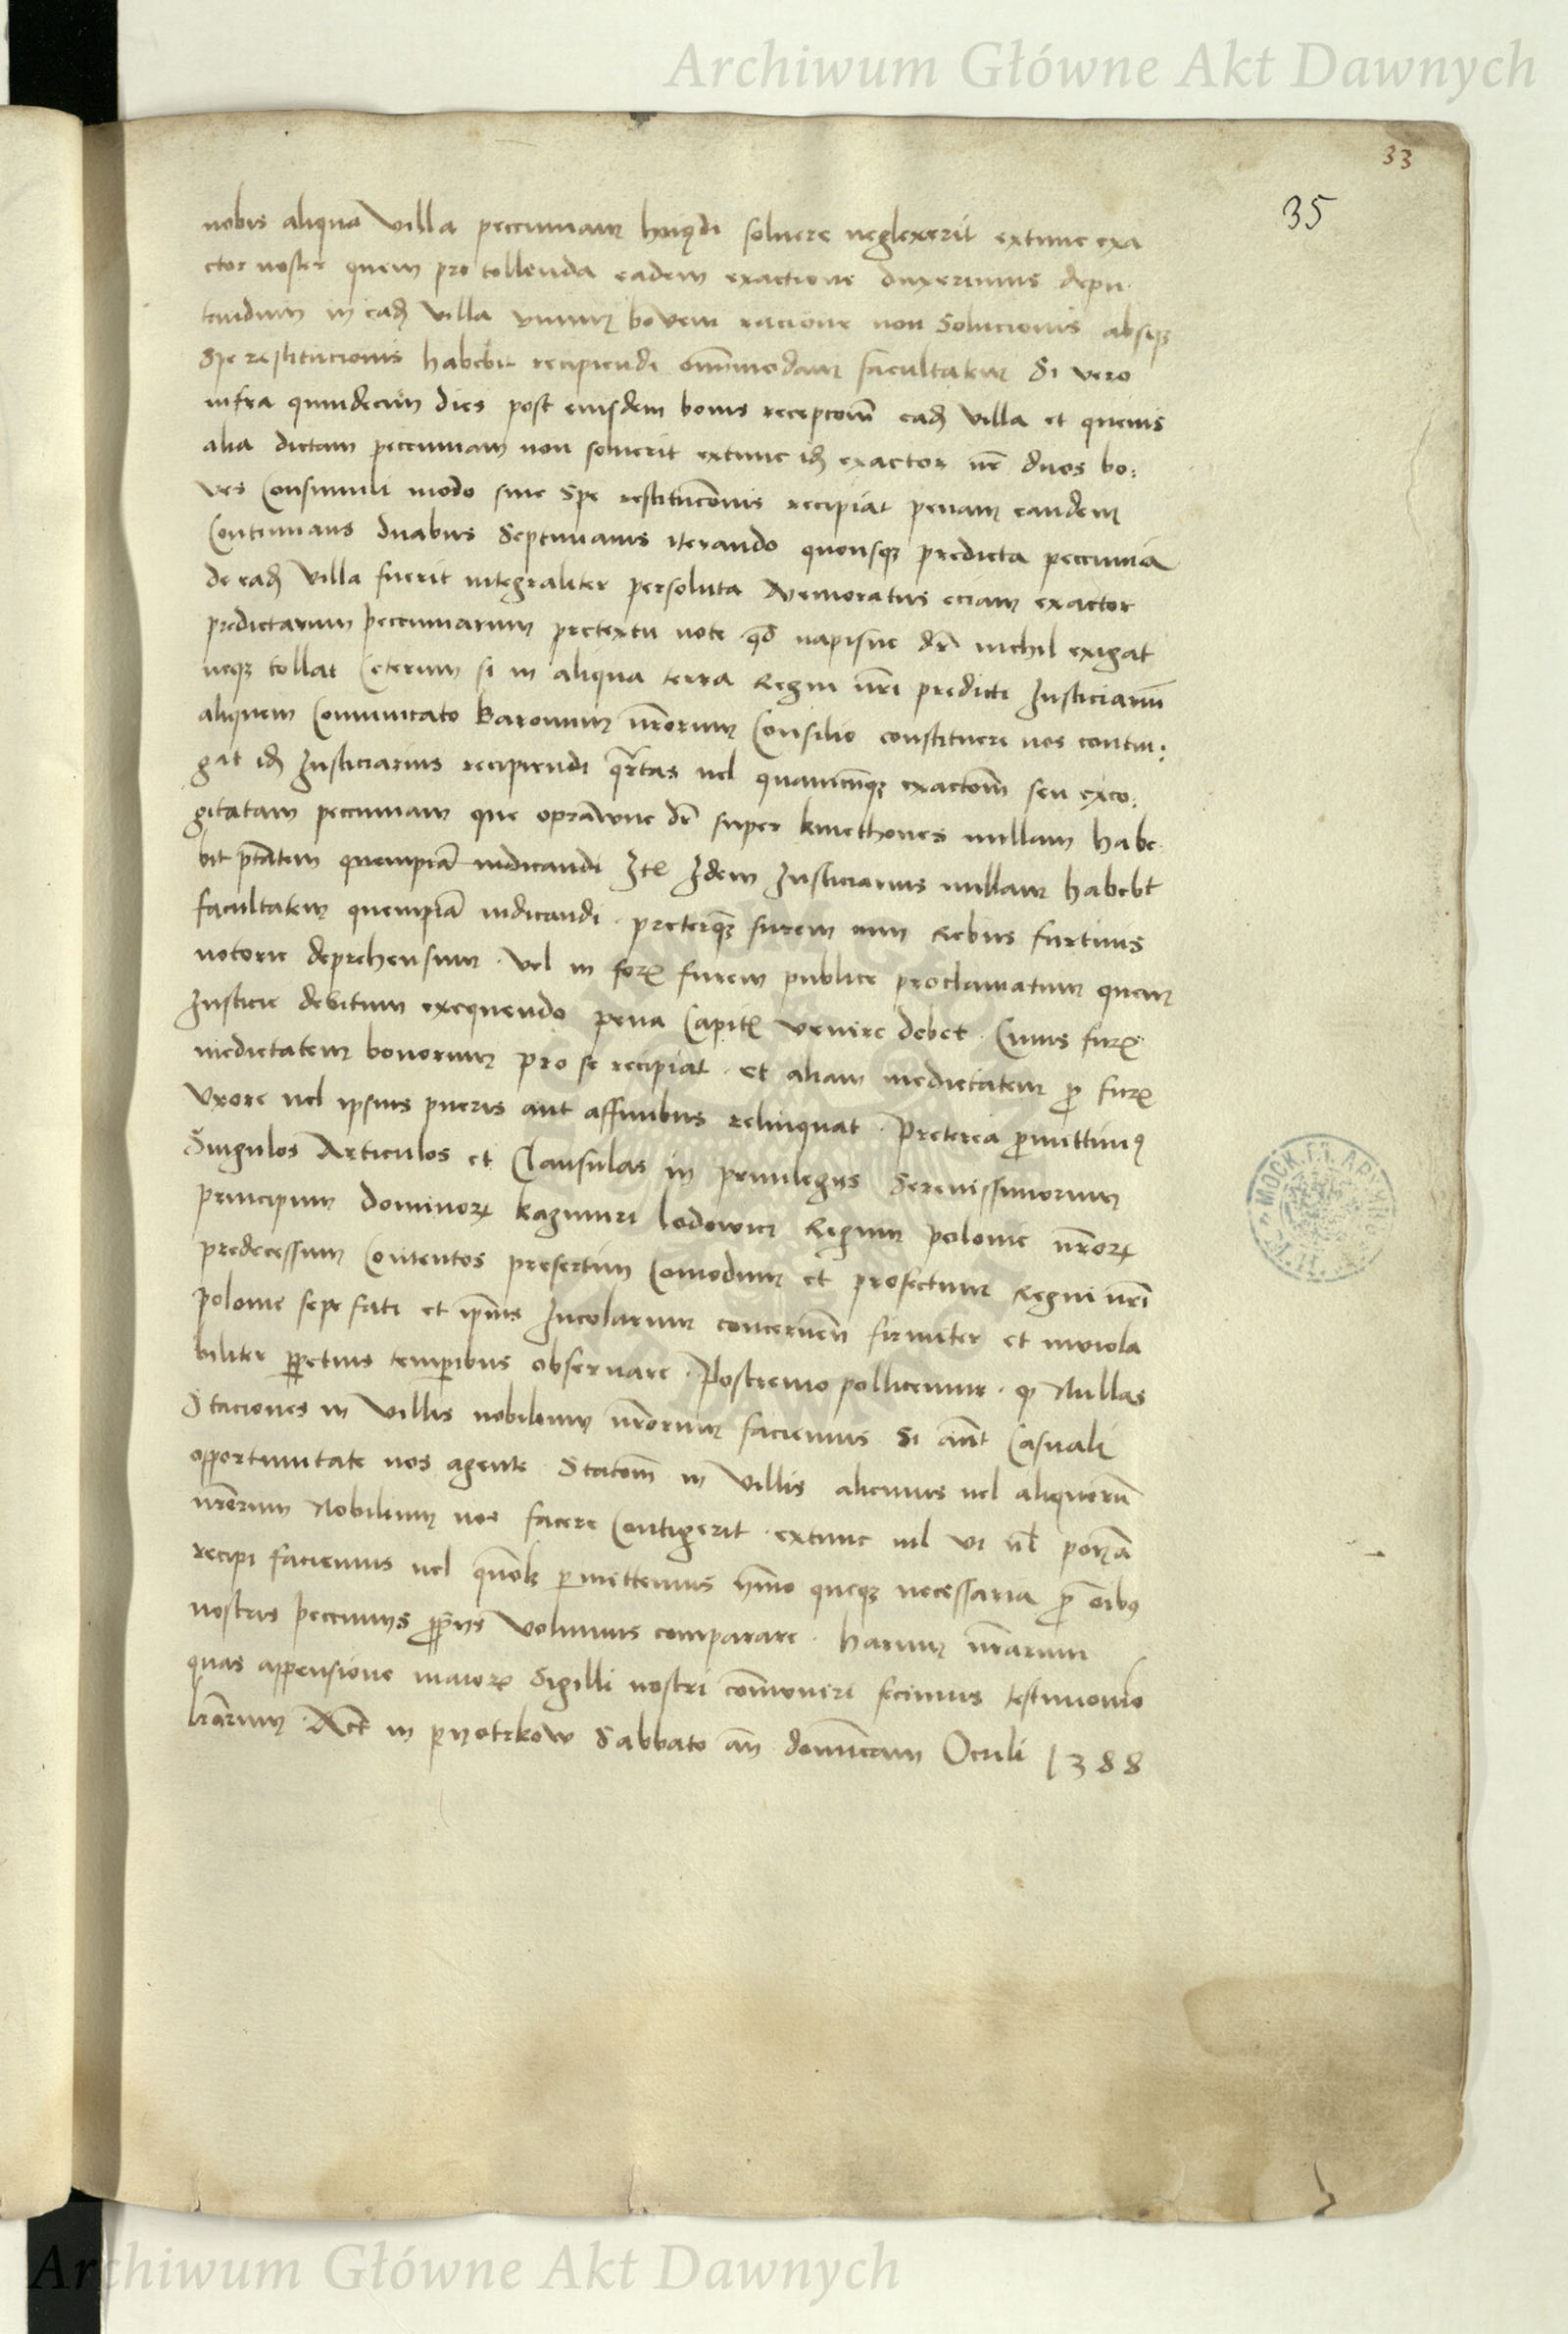 Archiwum Główne Akt Dawnych
33
35
nobis aliqua villa peccuniam hmoi soluere neglexerit extunc exa
ctor noster quem pro tollenda eadem exactione duxerimus depu
tandum in eadem villa vnum bovem racione non Solucionis absque
Spe restitucionis habebit recipiendi omnimodam facultatem Si vero
infra quindecim dies post eiusdem bovis recepcom eadem villa et queuis
alia dictam peccuniam non soluerit extunc idem exactor nr duos bo:
ves Consimili modo sine Spe restitucionis recipiat penam eandem
Continuans duabus Septimanis iterando quousque predicta peccunia
de eadem villa fuerit integraliter persoluta Memoratus eciam exactor
predictarum peccuniarum pretextu note quod napisne dr nichil exigat
neque tollat Ceterum si in aliqua terra Regni nri predicti Justiciarium
aliquem Comunicato Baronum nrorum Consilio constituere nos contin:
gat idem Justiciarius recipiendi quartas uel quamcunque exactom seu exco:
gitatam peccuniam que oprawne dr super kmethones nullam habe
bit ptatem quempiam iudicandi Ite Idem Justiciarius nullam habebt
facultatem quempiam iudicandi preterque furem cum Rebus furtiuis
notorie deprehensum vel in foro furem publice proclamatum quem
Justicie debitum exequendo pena Capitis venire debet Cuius furis
medietatem bonorum pro se recipiat et aliam medietatem pro furis
vxore uel ipsius pueris aut affinibus relinquat Preterea promittimus
Singulos Articulos et Clausulas in priuilegijs Serenissimorum
principum dominorum kazimiri lodowici Regum polonie nrorum
predecessum Contentos presertim Comodum et profectum Regni nri
polonie sepe fati et ipius Incolarum concernen firmiter et inviola
biliter perpetuis temporibus obseruare Postremo pollicemur quod Nullas
Staciones in villis nobilium nrorum faciemus Si aut Casuali
opportunitate nos agente Stacom in villis alicuius uel aliquorum
nrorum Nobilium nos facere Contigerit extunc nil vi uel
recipi faciemus uel permittemus ymo queque necessaria pro
nostris peccunijs propriis volumus comparare harum nrarum
quas appensione maioris Sigilli nostri comuniri fecimus testimonio
lrarum Act in pyotrkow Sabbato an dominicam Oculi 1388
Archiwum Główne Akt Dawnych